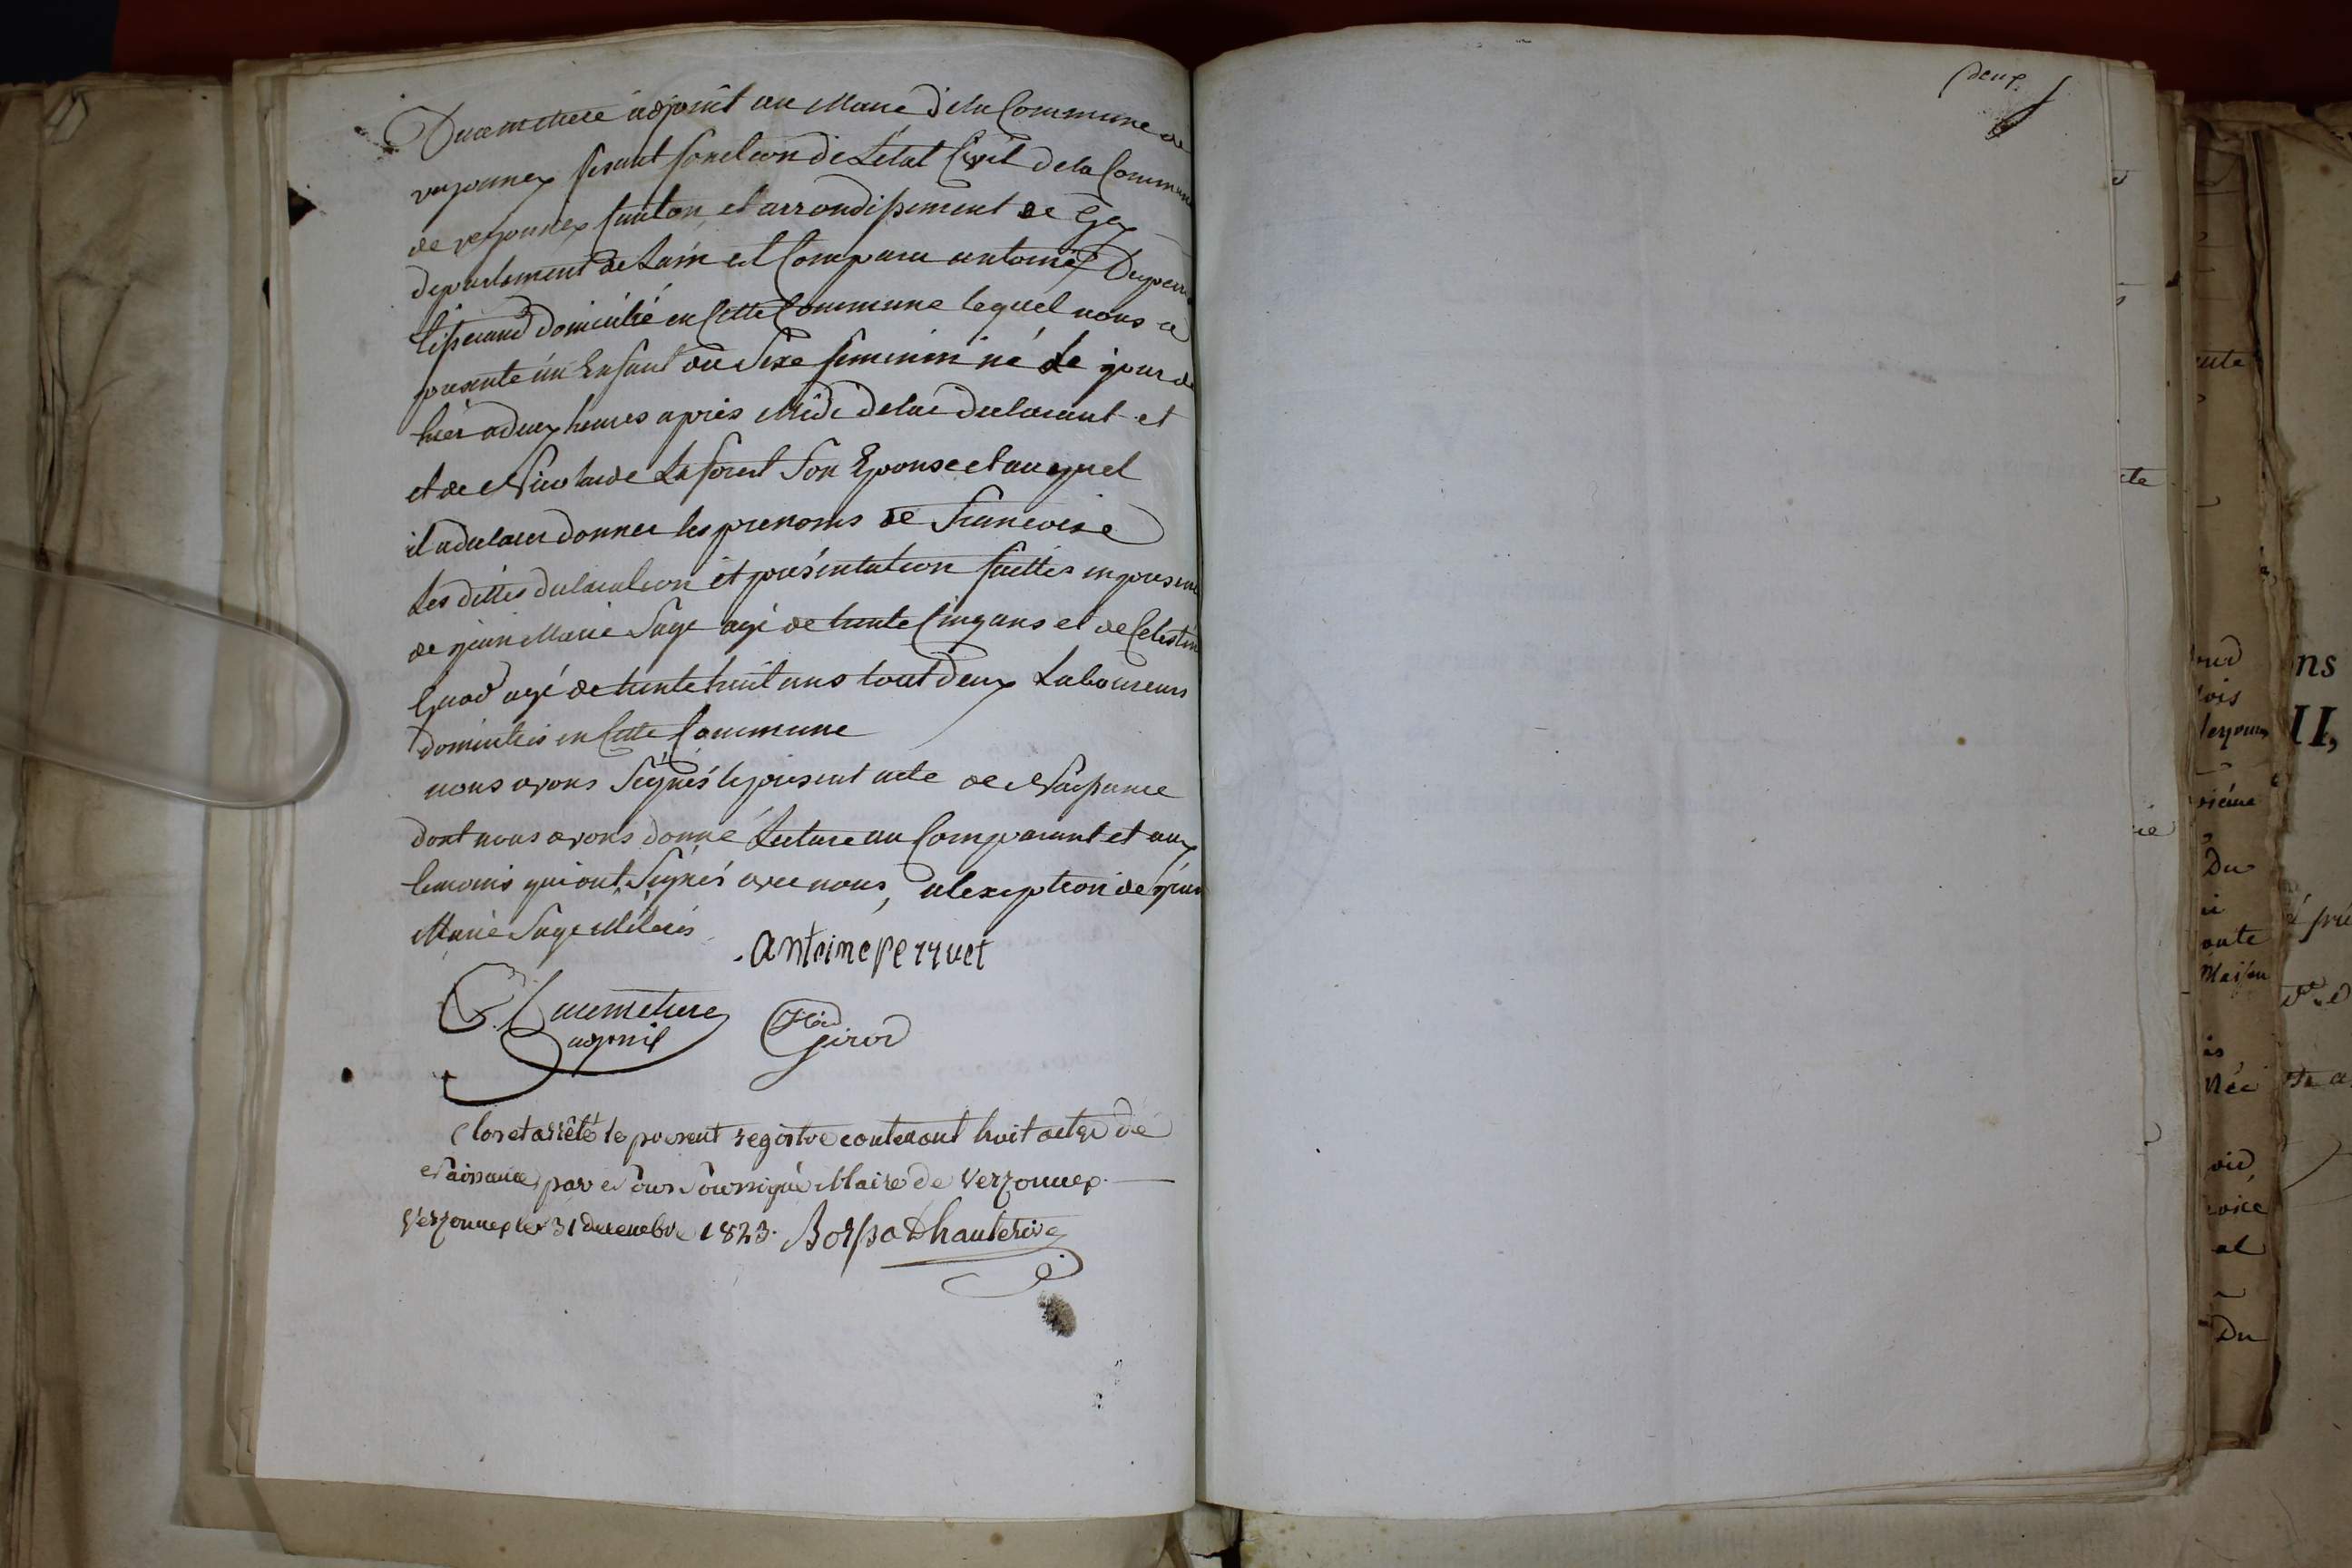 Ducimetiere adjoint au Maire de la Commune de
verzonnex fesant fonction de L'état Civil de la Commune
de verzonnex Canton et arrondissement de Gex
departement de Lain est Comparu antoine
tisserand domicilié en Cette Commune lequel nous a
presente un Enfant du Sexe feminin né Le jour de
hier a deux heures apres Midi de lui declarant et
et de Nicolarde Laforest Son Epouse et auquel
il a declarer donner les prenoms de Francoise
Les dittes declaration et présentation faittes en presence
de jean Marie Sage agé de trente Cinq ans et de Celestin
Girod agé de trente huit ans tout deux Laboureurs
domiciliés en Cette Commune
nous avons Signés le present acte de Naissance
dont nous avons donné Lecture au Comparant et aux
temoins qui ont Signés avec nous, a lexception de jean
Marie Sage
antoine perruet
Ducimetiere
adjoint
Girod
Clos et arrêté le present registre contenant huit actes de
Naissance, par Nous Soussigné Maire de Verzonnex
Verzonnex le 31 decembre 1823. Borssat Dhauterive
deux